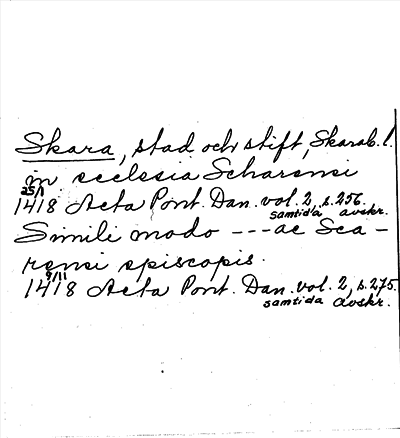 Skara, stad och stift, Skarab. l.
in ecclesia Scharensi
25/1
1418 Acta Pont. Dan. vol. 2, s. 256.
samtida avskr.
Simili modo --- ac Sca-
rensi episcopis.
9/11
1418 Acta Pont. Dan. vol. 2, s. 275.
samtida avskr.